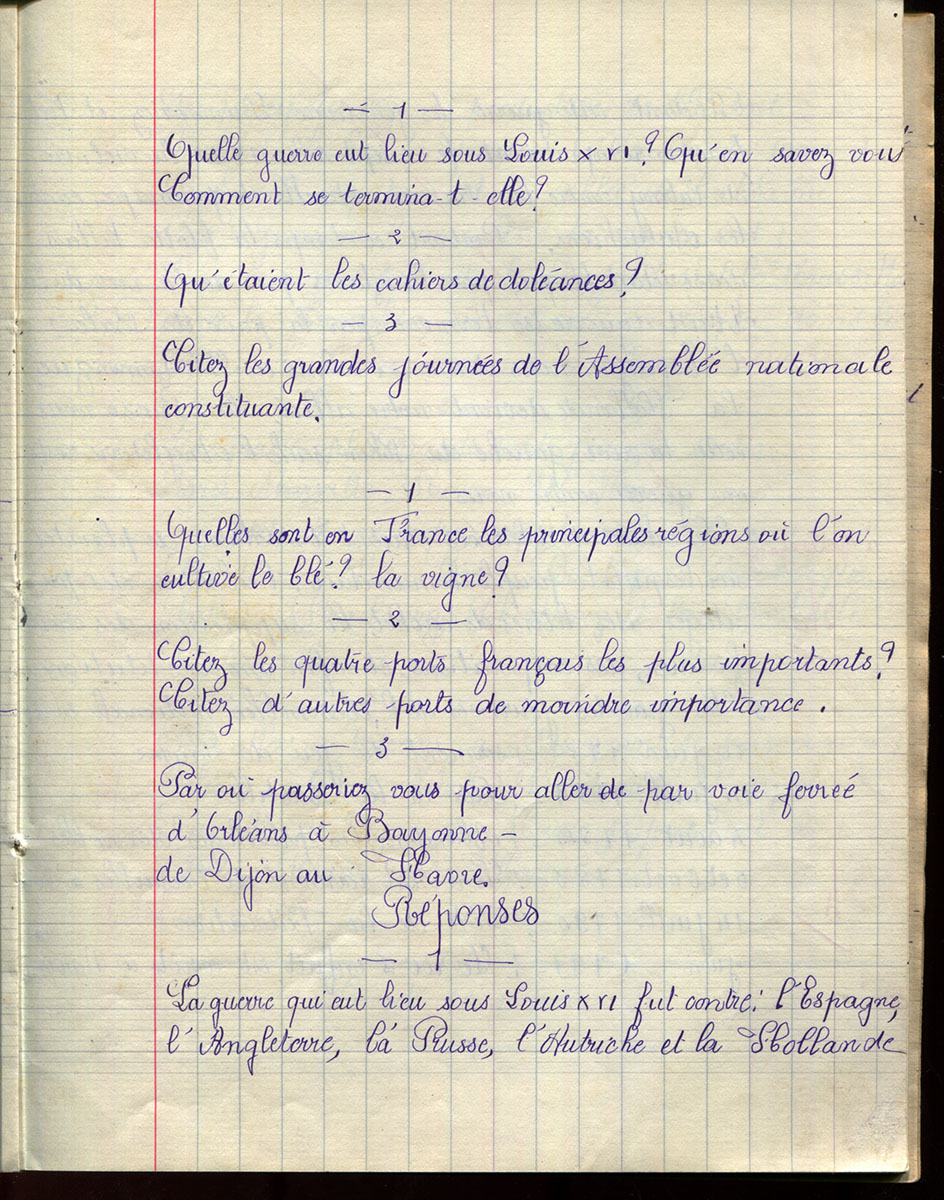 — 1 —
Quelle guerre eut lieu sous Louis XVI? Qu'en savez vous
Comment se termina-t-elle?
— 2 —
Qu'étaient les cahiers de doléances?
— 3 —
Citez les grandes journées de l'Assemblée nationale
constituante.
— 1 —
Quelles sont en France les principales régions où l'on
cultive le blé? la vigne?
— 2 —
Citez les quatre ports français les plus importants?
Citez d'autres ports de moindre importance.
— 3 —
Par où passeriez vous pour aller de par voie ferrée
d'Orléans à Bayonne –
de Dijon au Havre.
Réponses
— 1 —
La guerre qui eut lieu sous Louis XVI fut contre: l'Espagne,
l'Angleterre, la Prusse, l'Autriche et la Hollande